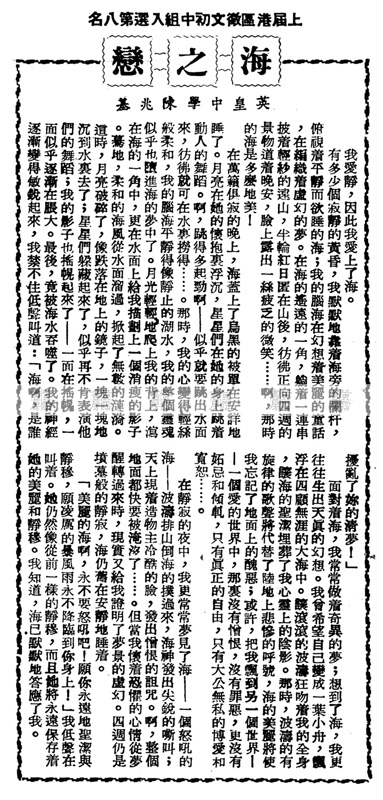 上屆港區徵文初中組入選第八名
海之戀
英皇中學　陳兆基
我愛靜，因此我愛上了海。
有多少個寂靜的黃昏，我默默地靠着海旁的欄杆，
俯視着平靜而欲睡的海；我的腦海在幻想着美麗的童話
，在編織着虛幻的美夢。在海的遙遠的一角，輪着一連串
披着輕紗的遠山，半輪紅日匿在山後，彷彿正向四週的
景物道着晚安，臉上露出一絲疲乏的微笑……啊，那時
的海是多麼地美！
在萬籟俱寂的晚上，海蓋上了烏黑的被單在安詳地
睡了。月亮在她的懷抱裏浮沉，星星們在她的身上跳着
動人的舞蹈。啊，跳得多起勁啊——似乎就要跳出水面
來，彷彿就可在水裏撈得……。那時，我的心變得輕絲
般柔和，我的腦海平靜得像靜止的湖水，我的整個靈魂
似乎也墮進海的夢中了。月光輕輕地爬上我的背上，瀉
在海的一角中，更在水面上給我描劃上一個消瘦的影子
。驀地，柔和的海風從水面溜過，掀起了無數的漣漪。
這時，月亮破碎了，像跌落在地上的鏡子，一塊一塊地
沉到水裏去了；星星們躲藏起來了，似乎再不肯表演他
們的舞蹈；我的影子也搖幌起來了——一面在搖幌，一
面似乎逐漸在脹大。最後，竟被海水吞噬了。我的神經
逐漸變得敏銳起來，我禁不住低聲叫道：「海啊，是誰
擾亂了妳的清夢！」
面對着海，我常常做着奇異的夢；想到了海，我更
往往生出天真的幻想。我曾希望自己變成一葉小舟，飄
浮在四顧無涯的大海中。讓滾滾的波濤狂吻着我的全身
，讓海的聖潔埋葬了我心靈上的陰影。那時，波濤的有
旋律的歌聲將代替了陸地上悲慘的呼號，海的美麗將使
我忘記了地面上的醜惡；或許，把我飄到另一個世界—
—一個愛的世界中，那裏沒有憎恨，沒有罪惡，更沒有
妬忌和傾軋，只有真正的自由，只有大公無私的博愛和
寬恕……。
在靜寂的夜中，我更常常夢見了海——一個怒吼的
海——波濤排山倒海的撲過來，海神發出尖銳的嘶叫；
天上現着造物主冷酷的臉，發出憎恨的詛咒。啊，整個
地面都快要被淹沒了……。但當我懷着恐懼的心情從夢
醒轉過來時，現實又給我證明了夢景的虛幻。四週仍是
墳墓般的靜寂，海仍舊在安靜地睡着。
「美麗的海啊，永不要怒吼吧！願你永遠地聖潔與
靜穆，願凌厲的暴風雨永不降臨到你身上！」我低聲在
叫着。她仍然像從前一樣的靜穆，而且她將永遠保存着
她的美麗和靜穆。我知道，海已默默地答應了我。